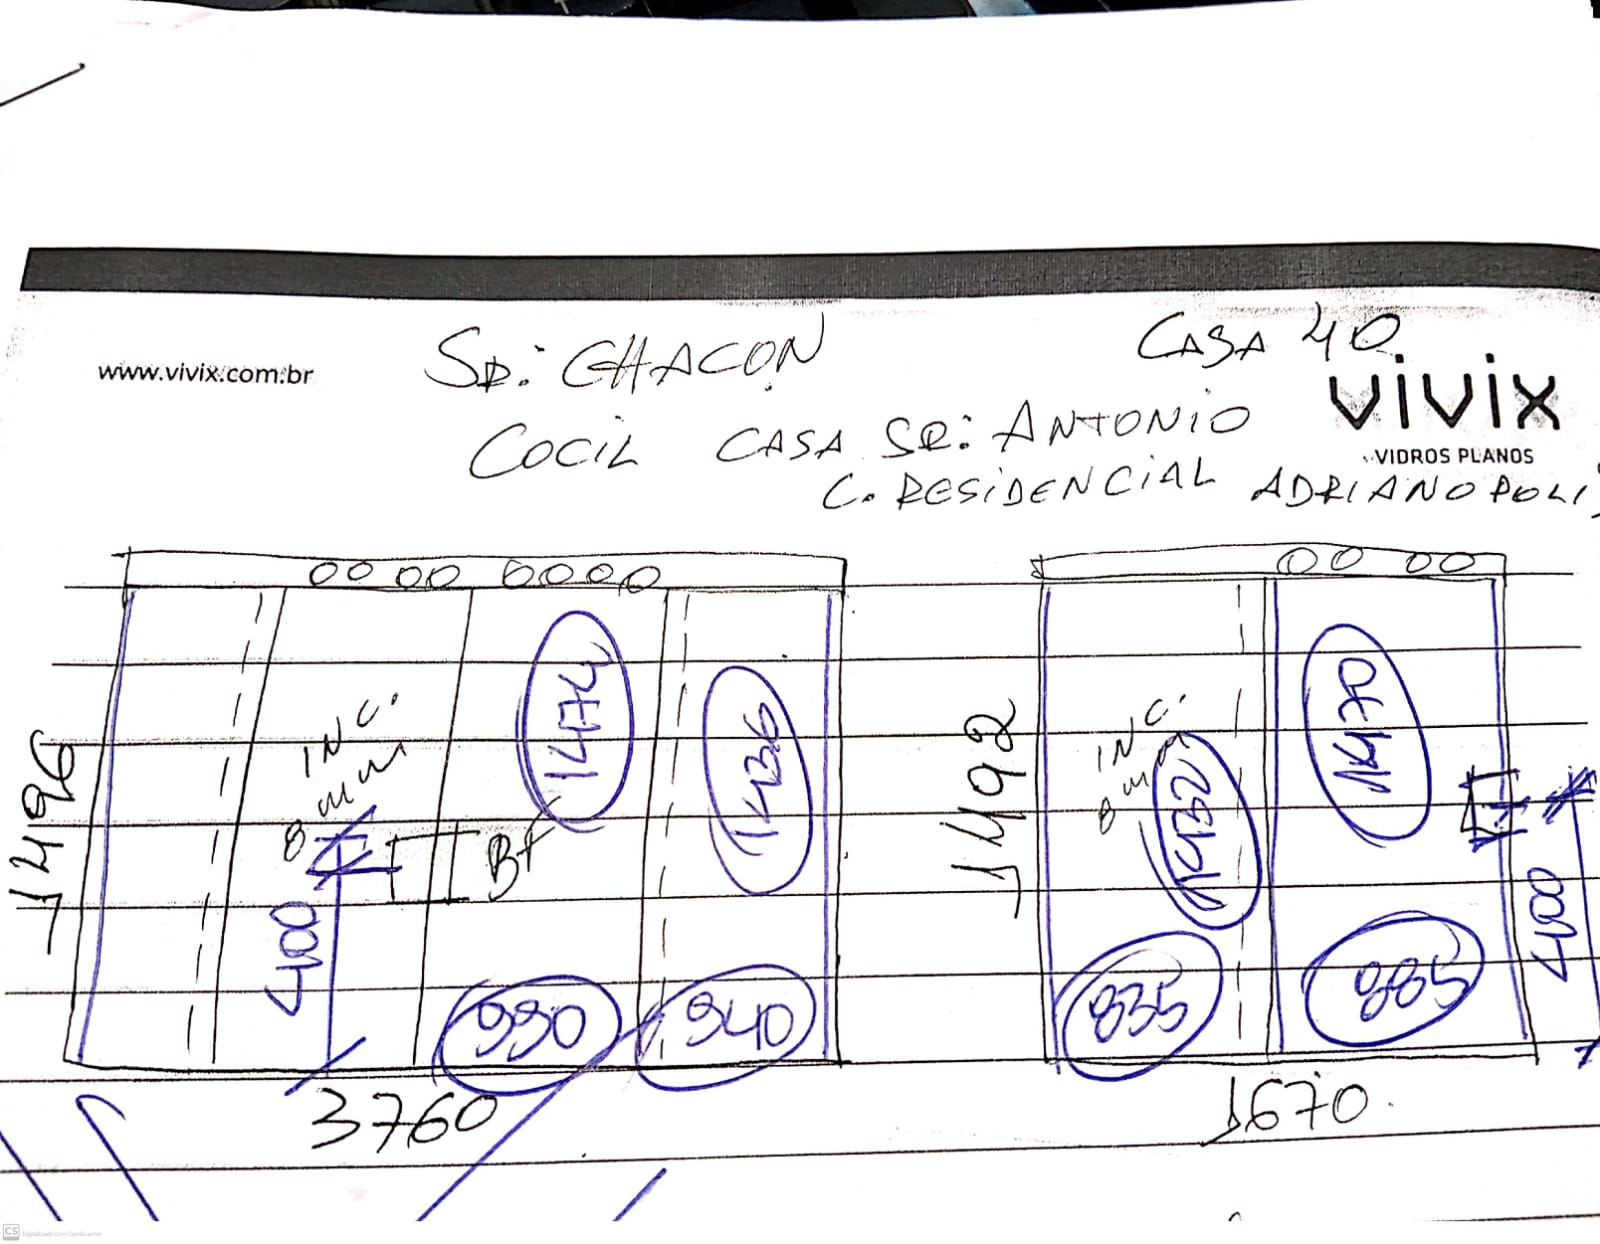 CASA 40
www.vivix.com.br
SR: CHACON
vivix
COCIL CASA SR: ANTONIO
VIDROS PLANOS
C. RESIDENCIAL ADRIANOPOLIS
1496
INC.
8mm
1474
1436
BF
400
990
940
3760
1492
INC.
8mm
1432
1470
400
835
885
1670
CS Digitalizado com CamScanner